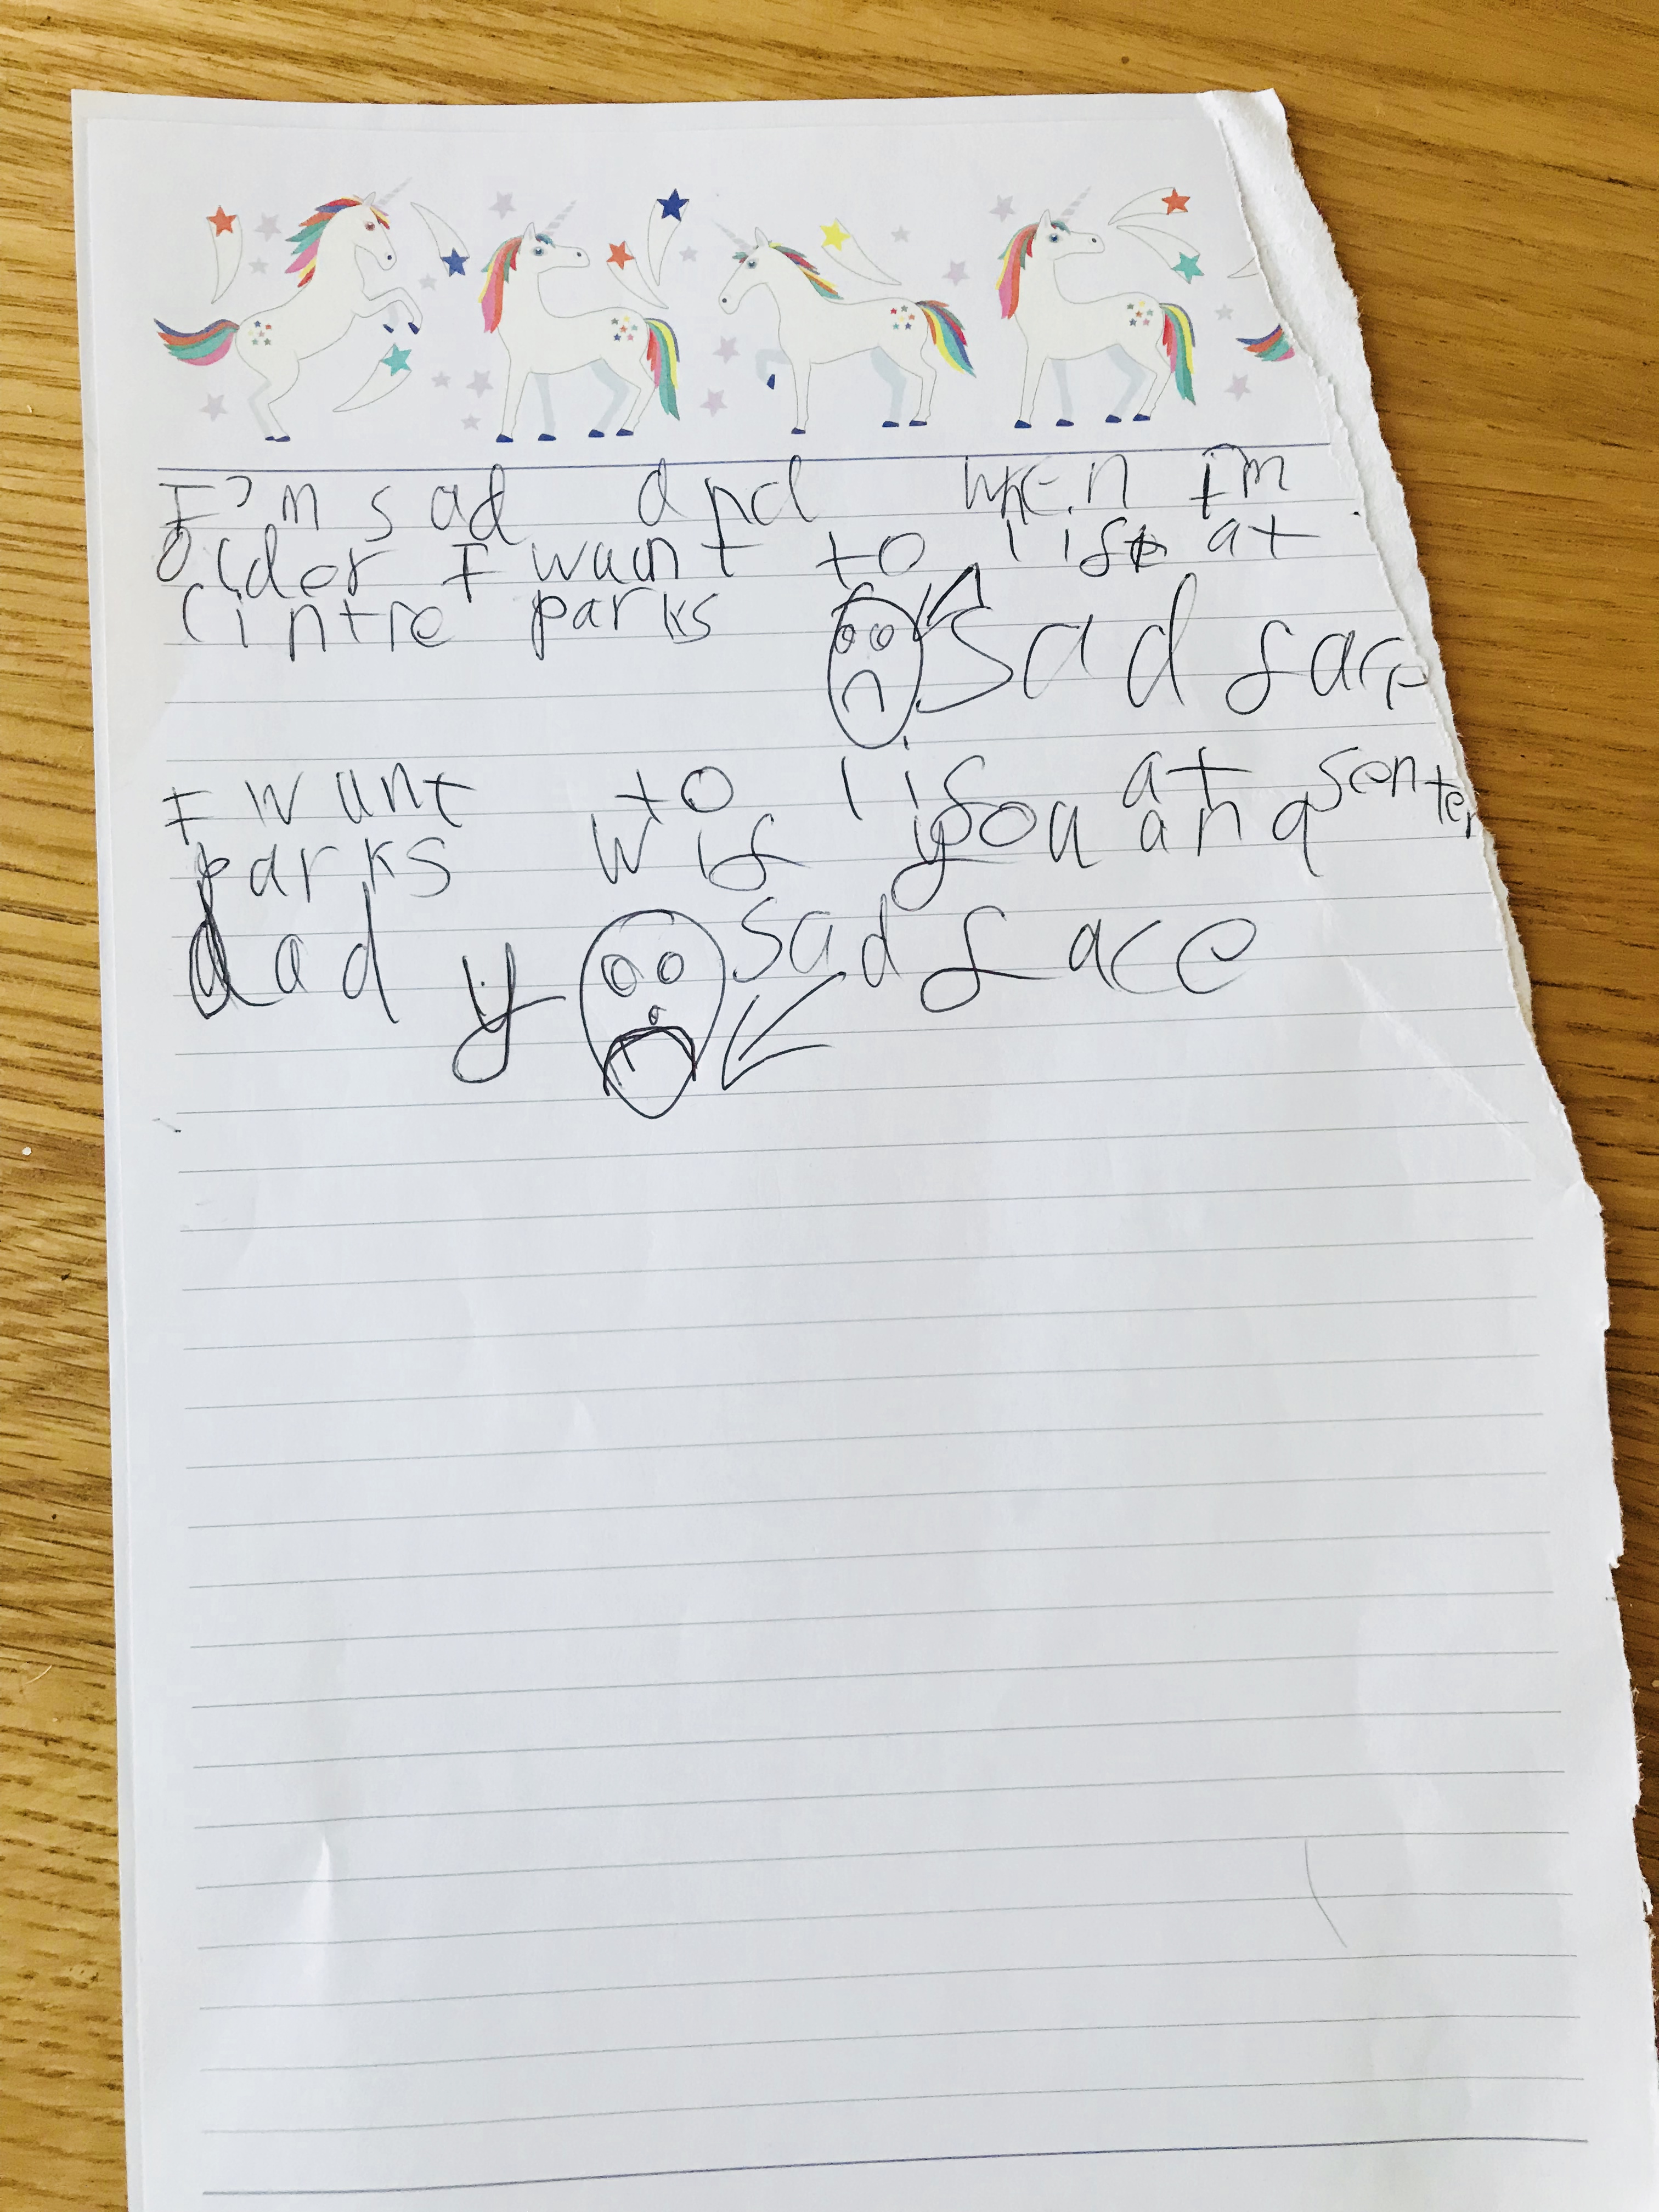 I'm sad and when i'm
older I want to life at
Cintre parks
sad face
I want to lif at senter
parks wif you and
dady
sad face